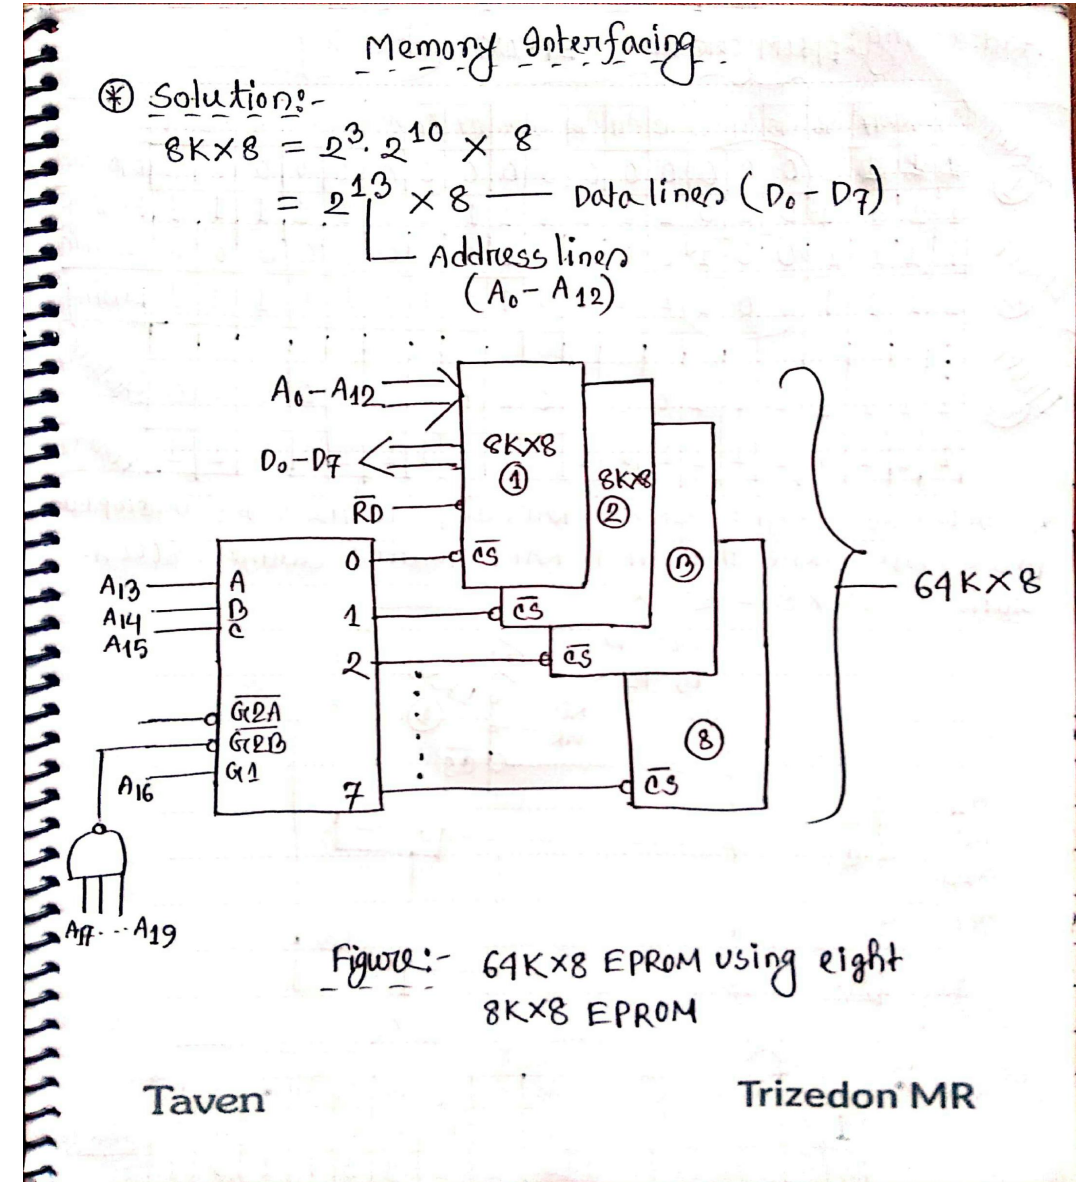 Memory Interfacing
* Solution:-
8K×8 = 2³. 2¹⁰ × 8
= 2¹³ × 8 — Data lines (D₀ - D7)
Address lines
(A₀ - A12)
A₀ - A12
D₀ - D7
R̅D̅
8K×8
1
8K×8
2
3
8
C̅S̅
C̅S̅
C̅S̅
C̅S̅
64K×8
A13
A14
A15
A
B
C
0
1
2
7
G̅2̅A̅
G̅2̅B̅
G1
A16
A17 - - - A19
Figure:- 64K×8 EPROM using eight
8K×8 EPROM
Taven
Trizedon MR